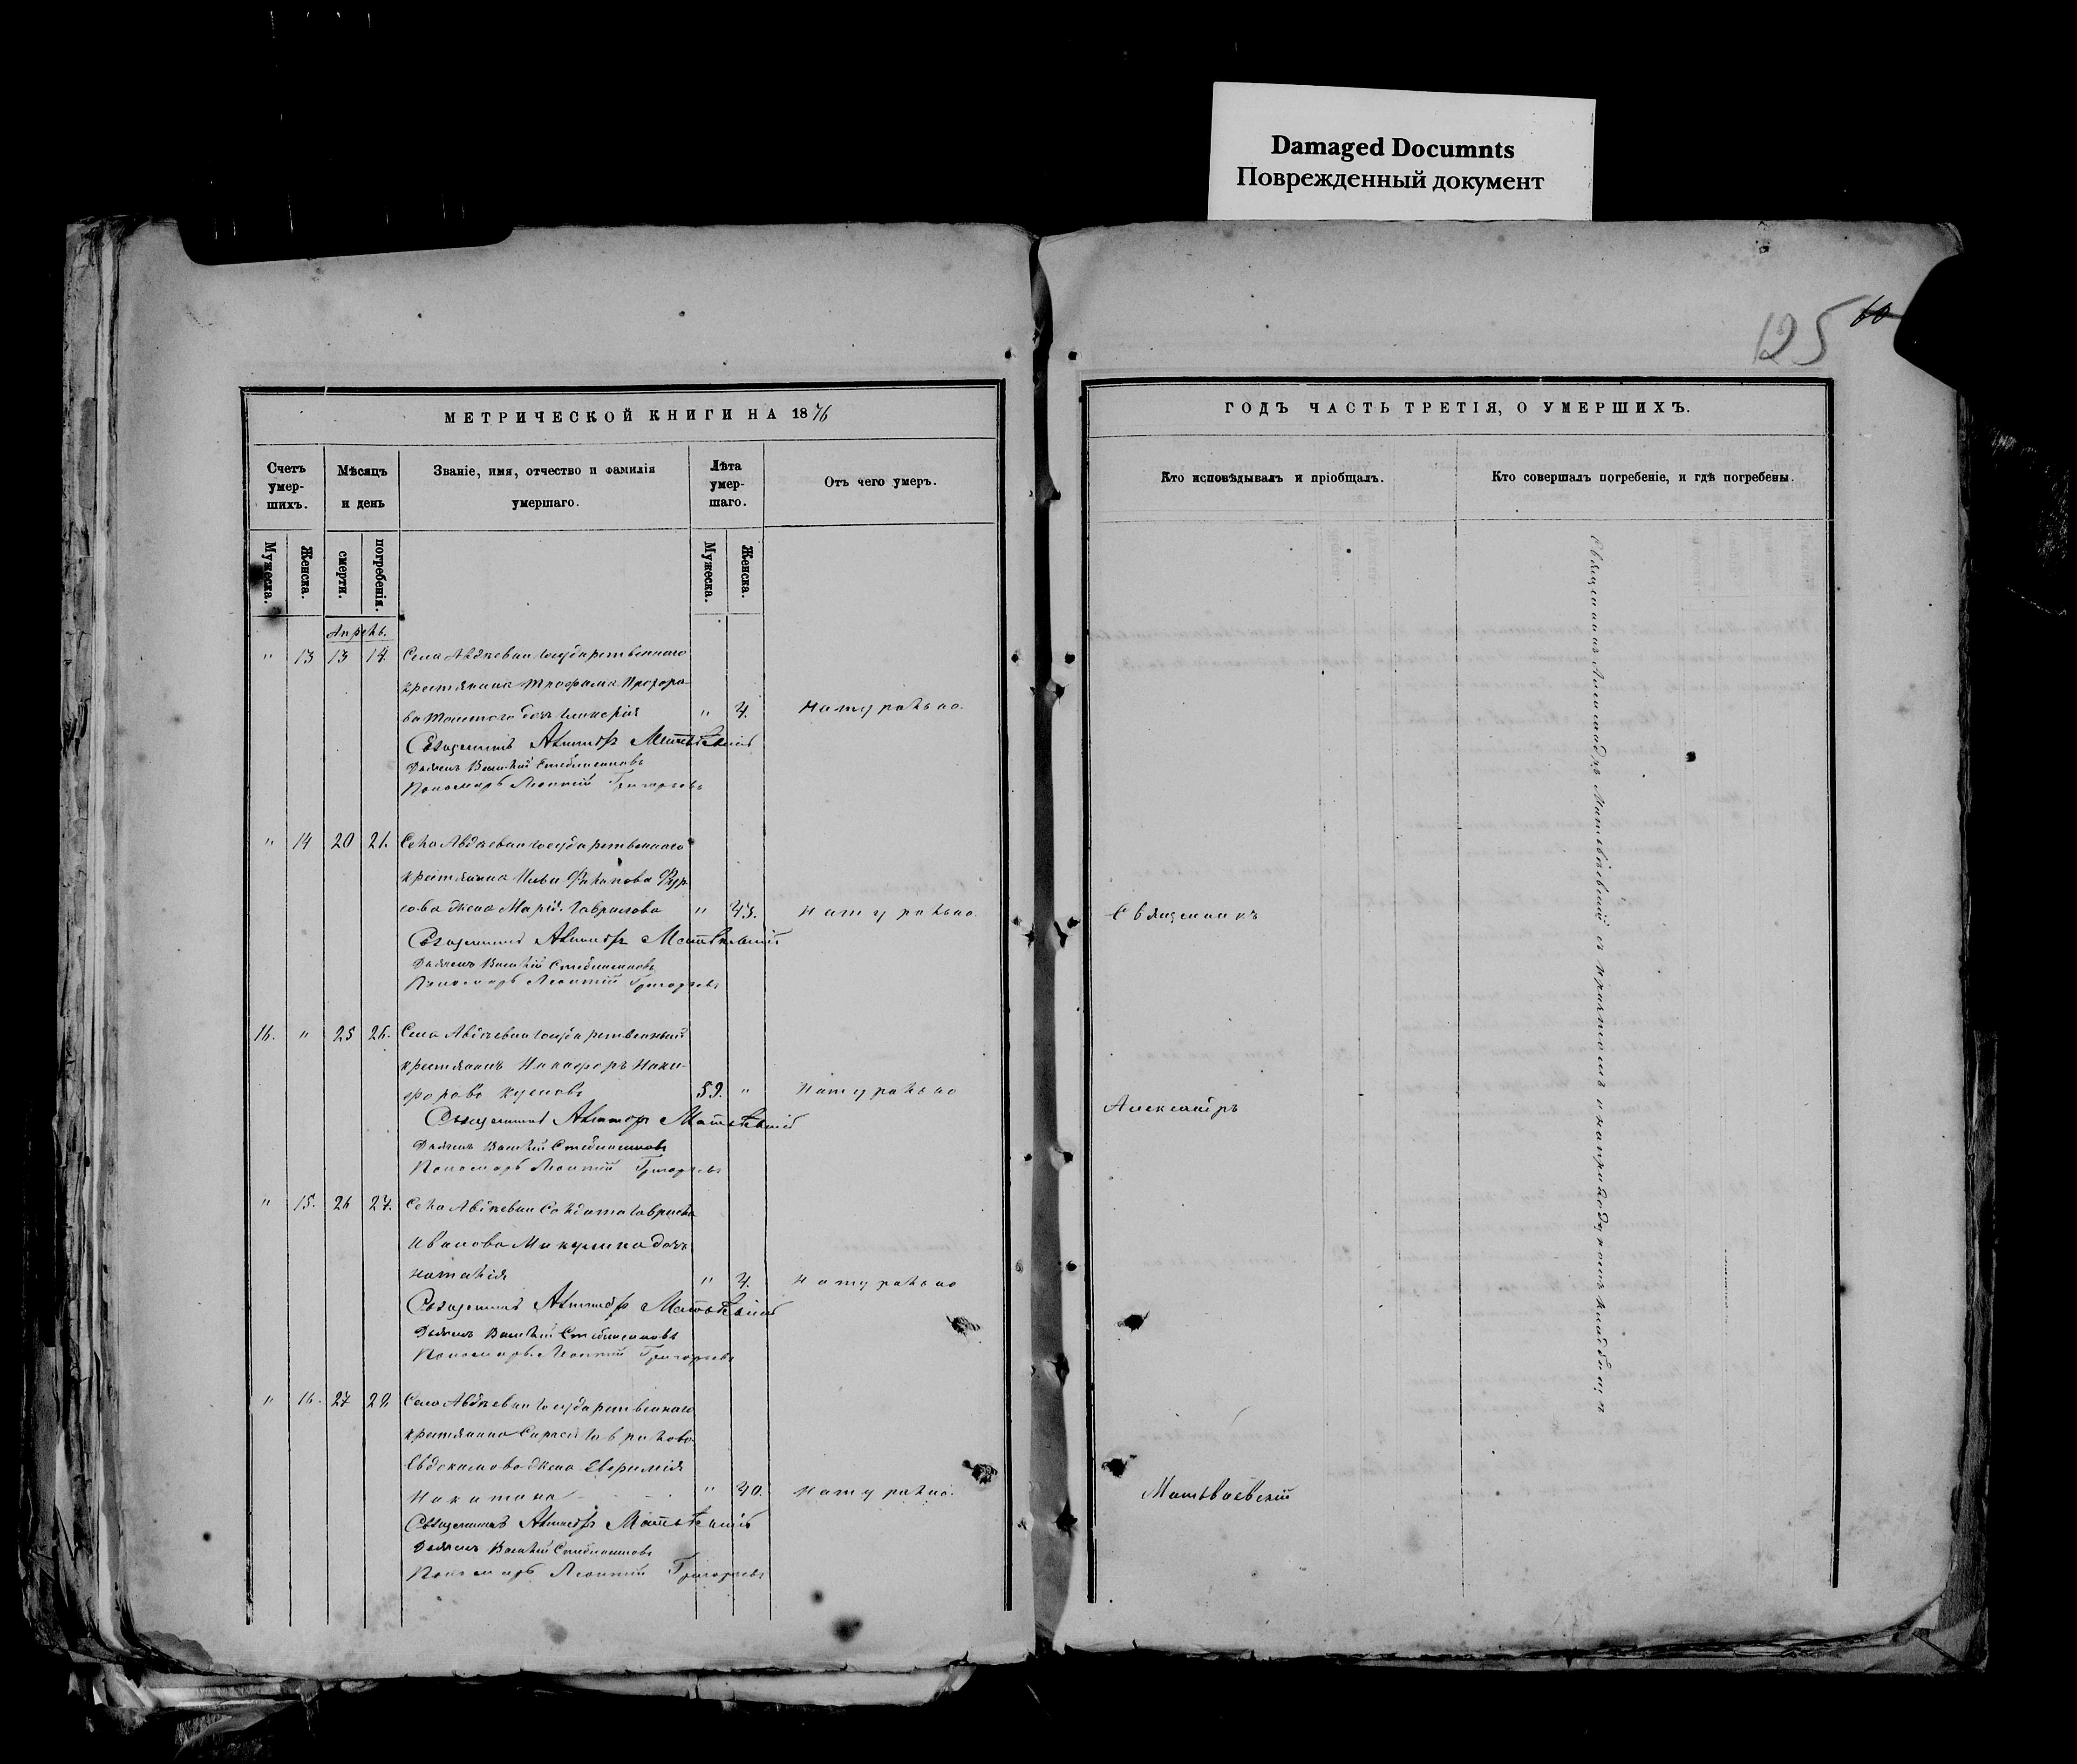 Damaged Documnts
Поврежденный документ
125 60
МЕТРИЧЕСКОЙ КНИГИ НА 1876
ГОДЪ ЧАСТЬ ТРЕТІЯ, О УМЕРШИХЪ.
Счетъ умер-шихъ.
Мѣсяцъ и день
Званіе, имя, отчество и фамилія умершаго.
Лѣта умер-шаго.
Отъ чего умеръ.
Кто исповѣдывалъ и пріобщалъ.
Кто совершалъ погребеніе, и гдѣ погребены.
Мужеска.
Женска.
смерти.
погребенія.
Мужеска.
Женска.
Апрель.
" 13 13 14. Села Авдѣевки государственнаго
крестьянина Трофима Прохоро-
ва дочь Гликерія " 4. Натурально.
Священникъ Александръ Матвѣевскій
Дьячекъ Василій
Пономарь Леонтій Григорьевъ
" 14 20 21. Села Авдѣевки государственнаго
крестьянина Ильи
жена Марія Гаврилова " 43. Натурально.
Священникъ
Священникъ Александръ Матвѣевскій
Дьячекъ Василій
Пономарь Леонтій Григорьевъ
16. " 25 26. Села Авдѣевки государственный
крестьянинъ Никифоръ Ники-
форовъ 59. " Натурально
Александръ
Священникъ Александръ Матвѣевскій
Дьячекъ Василій
Пономарь Леонтій Григорьевъ
" 15. 26 27. Села Авдѣевки Солдата Гаврила
Иванова дочь
Наталія " 4. Натурально
Священникъ Александръ Матвѣевскій
Дьячекъ Василій
Пономарь Леонтій Григорьевъ
" 16. 27 28 Села Авдѣевки государственнаго
крестьянина Сергея Гаврилова
Евдокимова жена Евфимія
" 40. Натурально.
Матвѣевскій
Священникъ Александръ Матвѣевскій
Дьячекъ Василій
Пономарь Леонтій Григорьевъ
Священникъ Александръ Матвѣевскій съ причтомъ на приходскомъ кладбищѣ